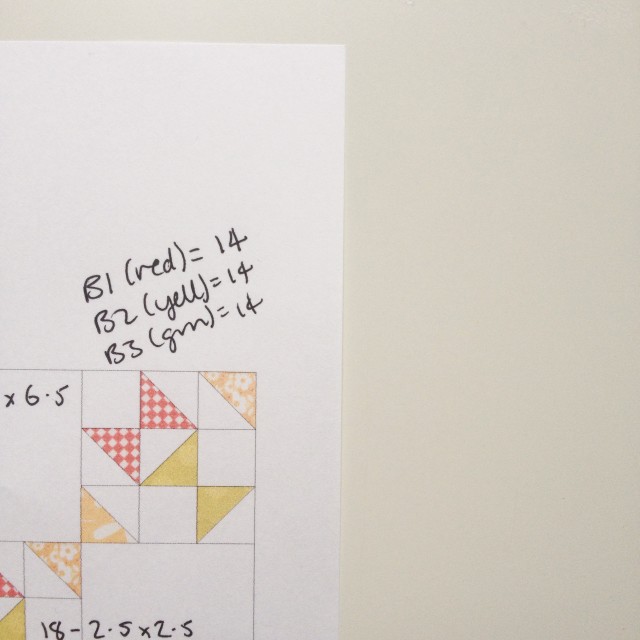 B1 (red) = 14
B2 (yell) = 14
B3 (grn) = 14
x 6.5
18 - 2.5 x 2.5